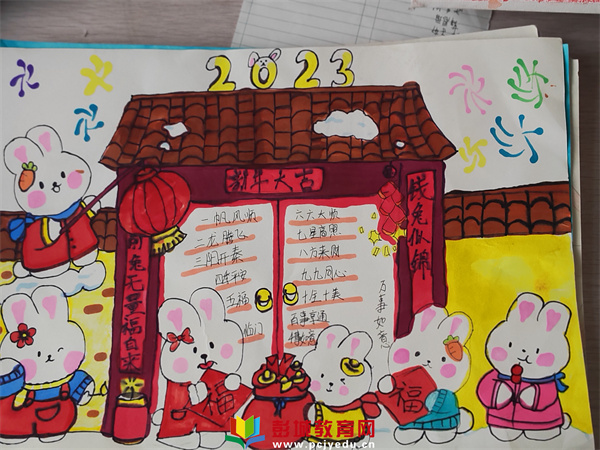 2023
新年大吉
钱兔似锦
前兔无量福自来
一帆风顺
二龙腾飞
三阳开泰
四季平安
五福
临门
六六大顺
七星高照
八方来财
九九同心
十全十美
百事亨通
万事如意
福
福
彭城教育网
www.pcjyedu.cn